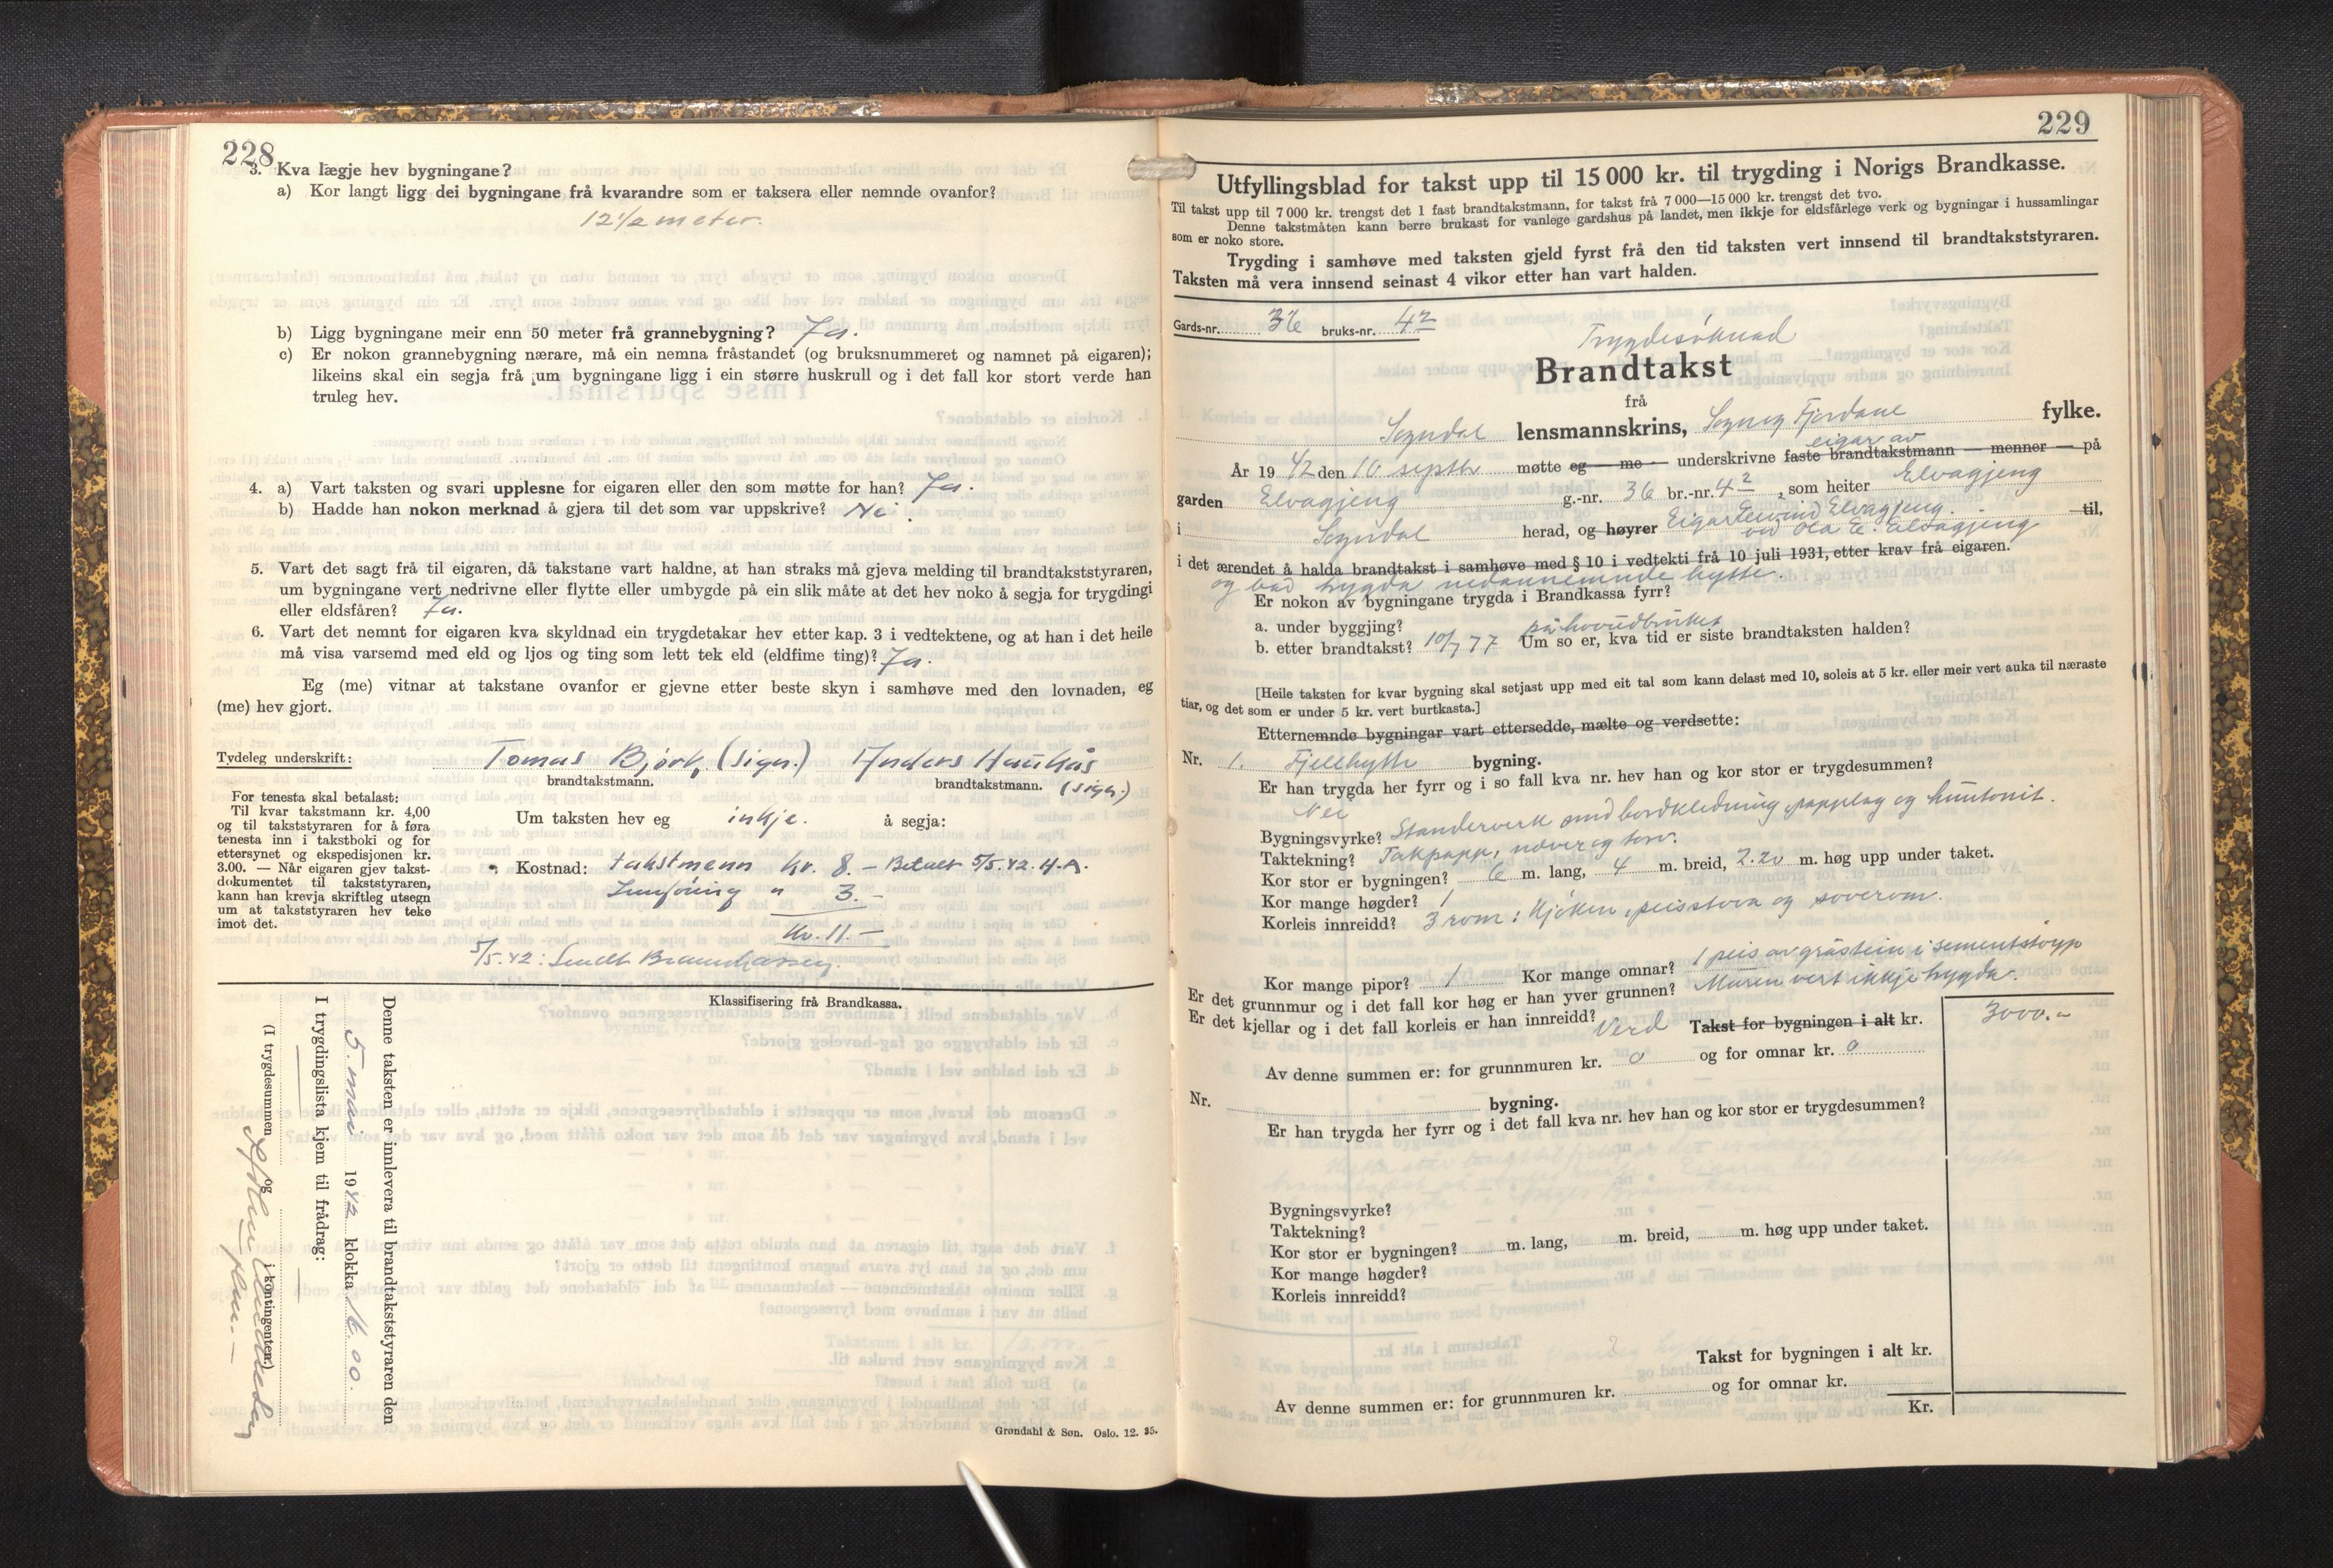 228
3. Kva lægje hev bygningane?
a) Kor langt ligg dei bygningane frå kvarandre som er taksera eller nemnde ovanfor?
12 1/2 meter.
b) Ligg bygningane meir enn 50 meter frå grannebygning? Ja.
c) Er nokon grannebygning nærare, må ein nemna fråstandet (og bruksnummeret og namnet på eigaren);
likeins skal ein segja frå um bygningane ligg i ein større huskrull og i det fall kor stort verde han
truleg hev.
4. a) Vart taksten og svari upplesne for eigaren eller den som møtte for han? Ja.
b) Hadde han nokon merknad å gjera til det som var uppskrive? Nei.
5. Vart det sagt frå til eigaren, då takstane vart haldne, at han straks må gjeva melding til brandtakststyraren,
um bygningane vert nedrivne eller flytte eller umbygde på ein slik måte at det hev noko å segja for trygdingi
eller eldsfåren? Ja.
6. Vart det nemnt for eigaren kva skyldnad ein trygdetakar hev etter kap. 3 i vedtektene, og at han i det heile
må visa varsemd med eld og ljos og ting som lett tek eld (eldfime ting)? Ja.
Eg (me) vitnar at takstane ovanfor er gjevne etter beste skyn i samhøve med den lovnaden, eg
(me) hev gjort.
Tydeleg underskrift: Tomas Bjørk, (sign.) Anders Haukås (sign.)
brandtakstmann. brandtakstmann.
For tenesta skal betalast:
Til kvar takstmann kr. 4,00
og til takststyraren for å føra
tenesta inn i takstboki og for
ettersynet og ekspedisjonen kr.
3.00. — Når eigaren gjev takst-
dokumentet til takststyraren,
kann han krevja skriftleg utsegn
um at takststyraren hev teke
imot det.
Um taksten hev eg inkje. å segja:
Kostnad: takstmenn kr. 8.– Betalt 5/5.42. H.A.
Innføring " 3.–
Kr. 11.–
5/5.42: Sendt Brannkassen.
Klassifisering frå Brandkassa.
Denne taksten er innlevera til brandtakststyraren den
5. mai 1942 klokka 16.00.
I trygdingslista kjem til frådrag:
(I trygdesummen og i kontingenten.)
Grøndahl & Søn. Oslo. 12. 35.
229
Utfyllingsblad for takst upp til 15 000 kr. til trygding i Norigs Brandkasse.
Til takst upp til 7 000 kr. trengst det 1 fast brandtakstmann, for takst frå 7 000—15 000 kr. trengst det tvo.
Denne takstmåten kann berre brukast for vanlege gardshus på landet, men ikkje for eldsfårlege verk og bygningar i hussamlingar
som er noko store.
Trygding i samhøve med taksten gjeld fyrst frå den tid taksten vert innsend til brandtakststyraren.
Taksten må vera innsend seinast 4 vikor etter han vart halden.
Gards-nr. 36 bruks-nr. 42
Trygdesøknad
Brandtakst
frå
Sogndal lensmannskrins, Sogn og Fjordane fylke.
eigar av
År 1942 den 10 septbr møtte eg — me — underskrivne faste brandtakstmann — menner — på
garden Elvagjeng g.-nr. 36 br.-nr. 42, som heiter Elvagjeng
i Sogndal herad, og høyrer Eigar Eeivind Elvagjeng. til,
ved Ola E. Elvagjeng
i det ærendet å halda brandtakst i samhøve med § 10 i vedtekti frå 10 juli 1931, etter krav frå eigaren.
og bad trygda nedannemnde hytte.
Er nokon av bygningane trygda i Brandkassa fyrr?
a. under byggjing? på hovudbruket
b. etter brandtakst? 10/7 77 Um so er, kva tid er siste brandtaksten halden?
[Heile taksten for kvar bygning skal setjast upp med eit tal som kann delast med 10, soleis at 5 kr. eller meir vert auka til næraste
tiar, og det som er under 5 kr. vert burtkasta.]
Etternemnde bygningar vart ettersedde, mælte og verdsette:
Nr. 1. Fjellhytte bygning.
Er han trygda her fyrr og i so fall kva nr. hev han og kor stor er trygdesummen?
Nei
Bygningsvyrke? Standerverk med bordkledning, papplag og huntonit.
Taktekning? Takpapp, never og torv.
Kor stor er bygningen? 6 m. lang, 4 m. breid, 2.20 m. høg upp under taket.
Kor mange høgder? 1
Korleis innreidd? 3 rom: Kjøken, peisstova og soverom.
Kor mange pipor? 1 Kor mange omnar? 1 peis av gråstein i sementstøyp
Er det grunnmur og i det fall kor høg er han yver grunnen? Muren vert ikkje trygda.
Er det kjellar og i det fall korleis er han innreidd?
Verd Takst for bygningen i alt kr. 3000.–
Av denne summen er: for grunnmuren kr. 0 og for omnar kr. 0
Nr. bygning.
Er han trygda her fyrr og i det fall kva nr. hev han og kor stor er trygdesummen?
Bygningsvyrke?
Taktekning?
Kor stor er bygningen? m. lang, m. breid, m. høg upp under taket.
Kor mange høgder?
Korleis innreidd?
Takst for bygningen i alt kr.
Av denne summen er: for grunnmuren kr. og for omnar kr.
Kr.